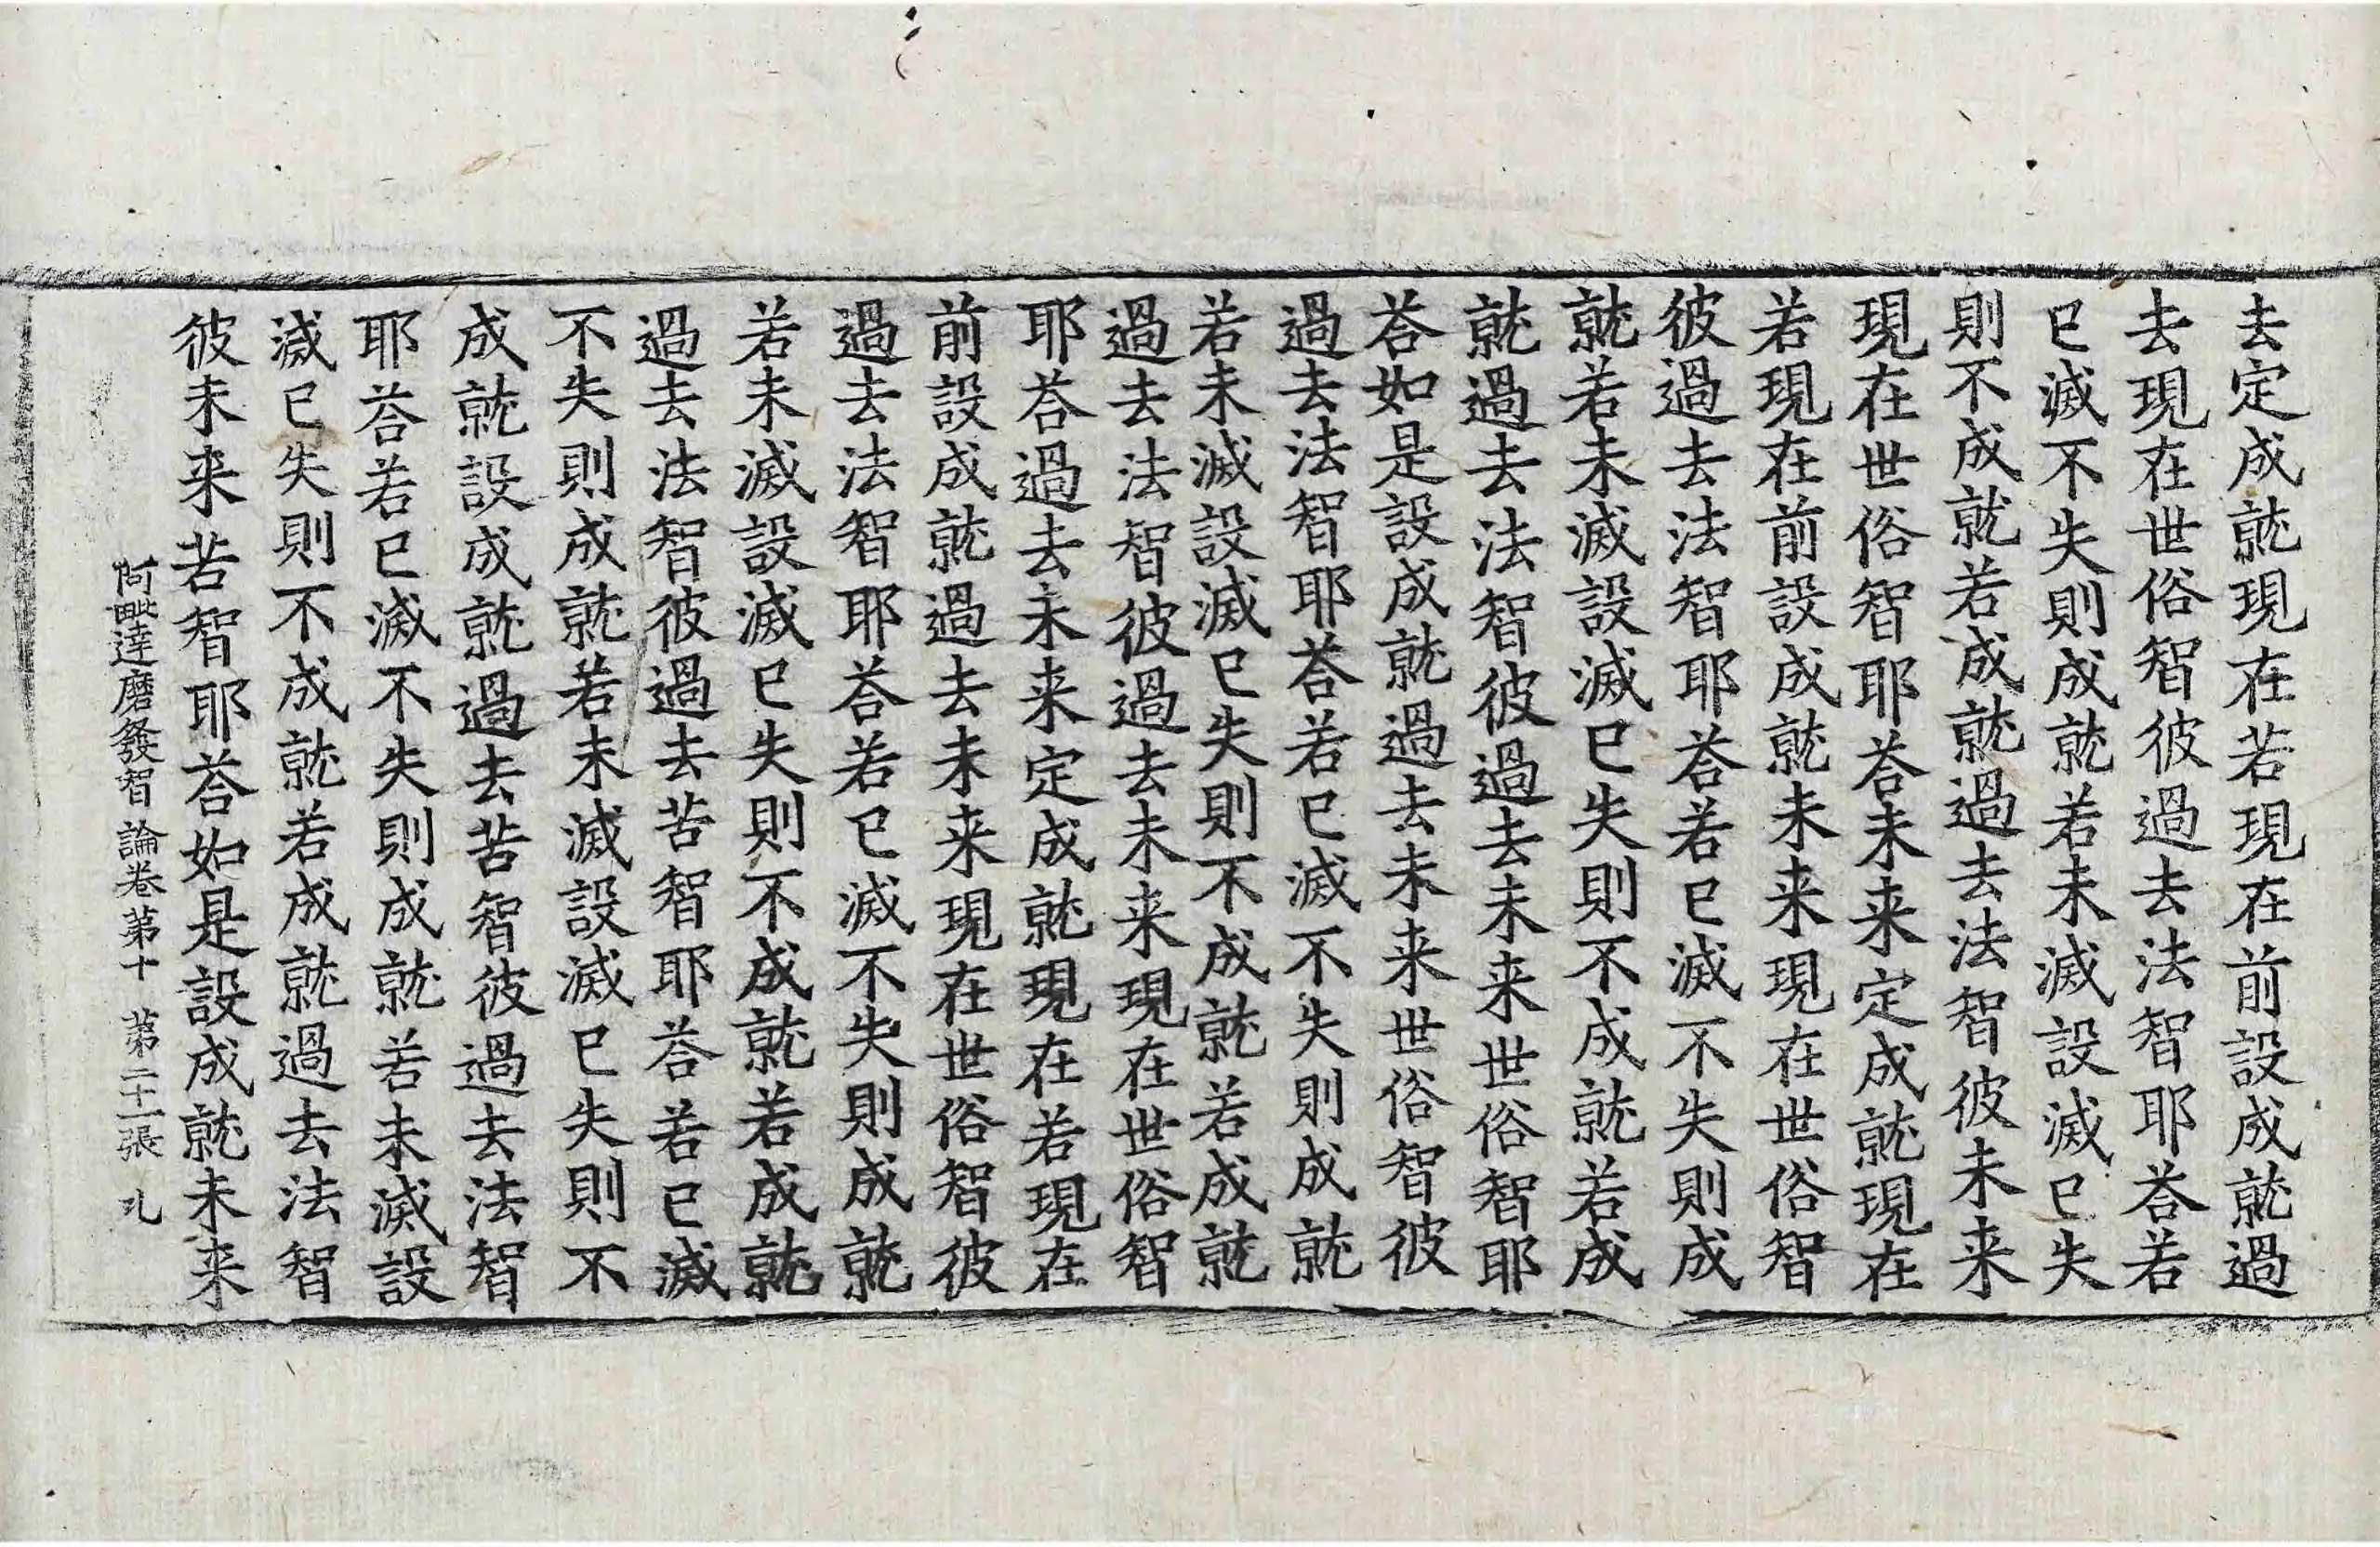 去定成就現在若現在前設成就過
去現在世俗智彼過去法智耶荅若
已滅不失則成就若未滅設滅已失
則不成就若成就過去法智彼未来
現在世俗智耶荅未来定成就現在
若現在前設成就未来現在世俗智
彼過去法智耶荅若已滅不失則成
就若未滅設滅已失則不成就若成
就過去法智彼過去未来世俗智耶
荅如是設成就過去未来世俗智彼
過去法智耶荅若已滅不失則成就
若未滅設滅已失則不成就若成就
過去法智彼過去未来現在世俗智
耶荅過去未来定成就現在若現在
前設成就過去未来現在世俗智彼
過去法智耶荅若已滅不失則成就
若未滅設滅已失則不成就若成就
過去法智彼過去苦智耶荅若已滅
不失則成就若未滅設滅已失則不
成就設成就過去苦智彼過去法智
耶荅若已滅不失則成就若未滅設
滅已失則不成就若成就過去法智
彼未来苦智耶荅如是設成就未来
阿毗達磨發智論卷第十 第二十一張